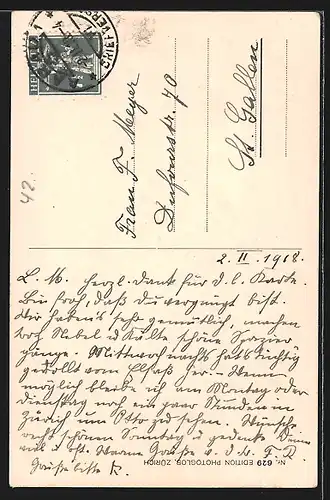 HELVETIA
ZÜRICH
42.
Frau F. Meyer
Dufourstr. 70
St. Gallen
2. II. 1918.
L. M. Herzl. Dank für d. l. Karte.
Bin froh, daß du vergnügt bist.
Wir haben's sehr gemütlich, machen
trotz Nebel & Kälte schöne Spazier
gänge. Mittwoch nachts hat's tüchtig
gerollt vom Elsaß her. – Wenn
möglich bleibe ich am Montag oder
Dienstag noch ein paar Stunden in
Zürich um Otto zu sehen. Wünsche
recht schönen Sonntag & gedenke
Warme Grüße v. d. G.
Grüße bitte R.
Nr. 629 EDITION PHOTOGLOB, ZÜRICH